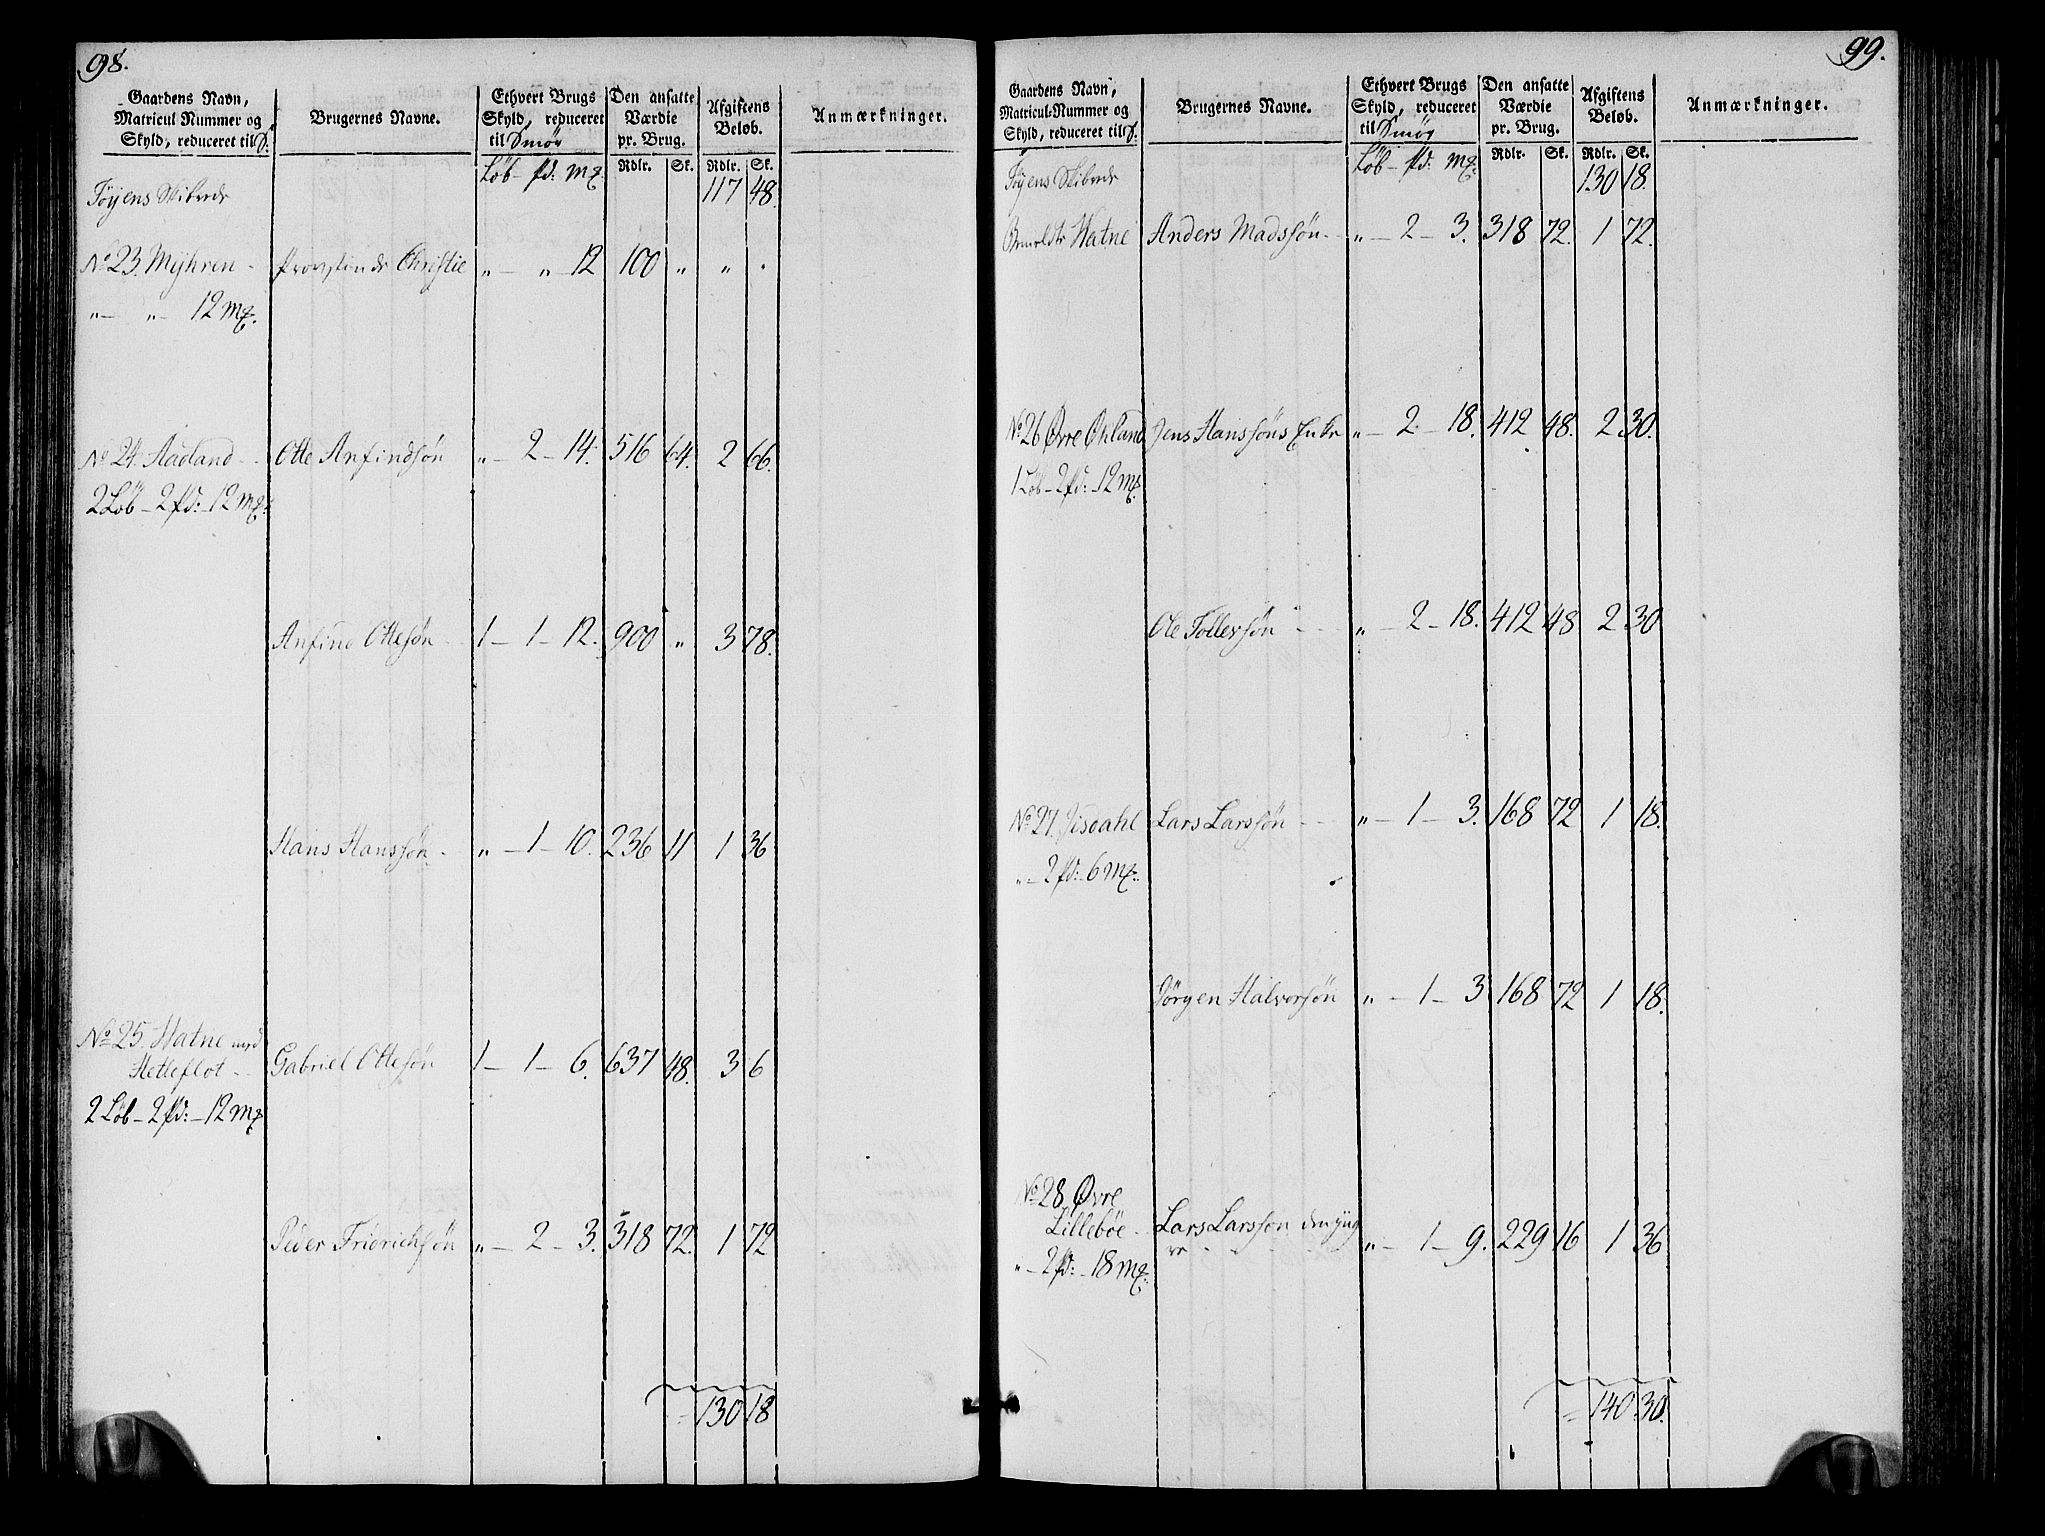 98.
Gaardens Navn, Matricul Nummer og Skyld, reduceret til S: Brugernes Navne. Ethvert Brugs Skyld, reduceret til Smör Den ansatte Værdie pr. Brug. Afgiftens Belöb. Anmærkninger.
Löb – pd: m&. Rdlr. Sk. Rdlr. Sk.
Föyens Skibrede 117 48.
No 23. Mÿhren - Provstinde Christie „ – „ – 12 100 „ „ .
„ – „ – 12 m&.
No 24. Aadland - - Otte Anfindsön „ – 2 – 14. 516 64. 2 66.
2 Löb – 2 pd: – 12 m&.
Anfind Ottesön - 1 – 1 – 12. 900 „ 3 78.
Hans Hanssön - „ – 1 – 10. 236 11 1 36
No 25. Hatne med
Hetleflot - - Gabriel Ottesön 1 – 1 – 6. 637 48. 3 6
2 Löb – 2 pd: – 12 m&
Peder Fridrichsön „ – 2 – 3. 318 72. 1 72
= 130 18
99.
Gaardens Navn, Matricul-Nummer og Skyld, reduceret til S: Brugernes Navne. Ethvert Brugs Skyld, reduceret til Smör Den ansatte Værdie pr. Brug. Afgiftens Belöb. Anmærkninger.
Löb – pd: m&. Rdlr. Sk. Rdlr. Sk.
Föyens Skibrede 130 18.
Hatne Anders Madssön - „ – 2 – 3. 318 72. 1 72.
No 26 Øvre Øhland Jens Hanssöns Enke „ – 2 – 18. 412 48. 2 30.
1 Löb – 2 pd: – 12 m&
Ole Tollevsön - - „ – 2 – 18. 412 48 2 30
No 27. Jisdahl Lars Larssön - - „ – 1 – 3. 168 72 1 18.
„ – 2 pd: – 6 m&.
Jörgen Halvorsön „ – 1 – 3 168 72 1 18.
No 28. Øvre
Lillebøe - Lars Larssön den yng
re „ – 1 – 9. 229 16 1 36
„ – 2 pd: – 18 m&.
= 140 30.